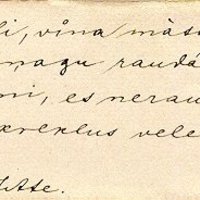 li, viņa māsi
nagu raudā
mi, es nerau
kreklus vele
Jette.